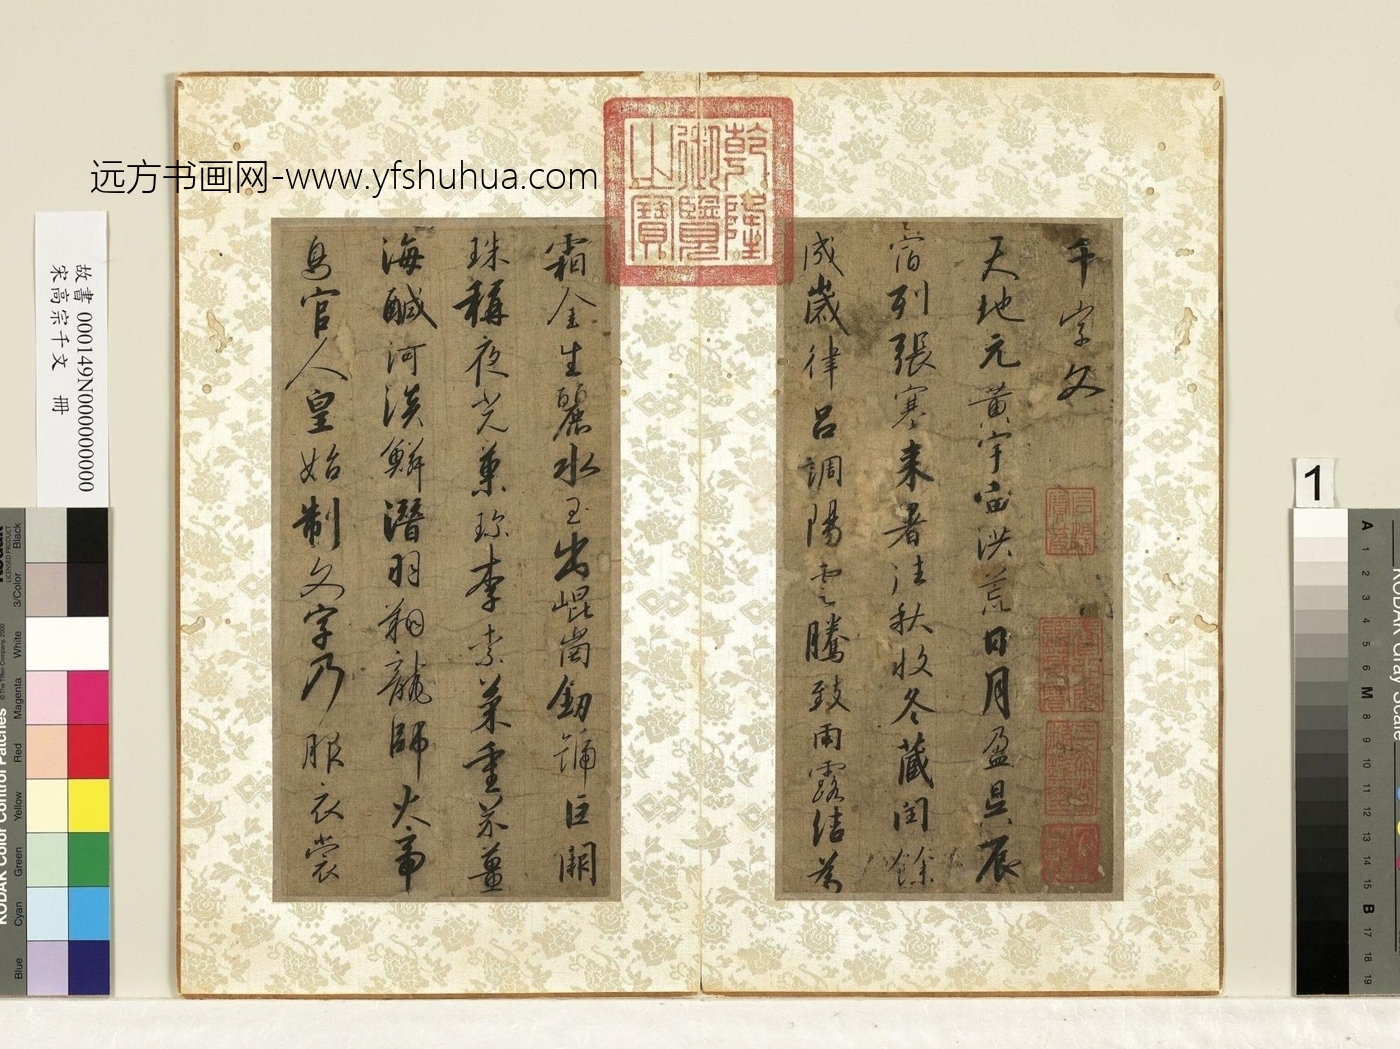 远方书画网-www.yfshuhua.com
乾隆御覽之寶
千字文
天地元黃宇宙洪荒日月盈昃辰
宿列張寒来暑往秋收冬藏閏餘
成歲律呂調陽雲騰致雨露結為
霜金生麗水玉出崐崗劒號巨闕
珠稱夜光菓珍李柰菜重芥薑
海鹹河淡鱗潛羽翔龍師火帝
鳥官人皇始制文字乃服衣裳
故書 000149N000000000
宋高宗千文 冊
1
KODAK Color Control Patches
LICENSED PRODUCT
Black
3/Color
White
Magenta
Red
Yellow
Green
Cyan
Blue
KODAK Gray Scale
A
1
2
3
4
5
6
M
8
9
10
11
12
13
14
15
B
17
18
19